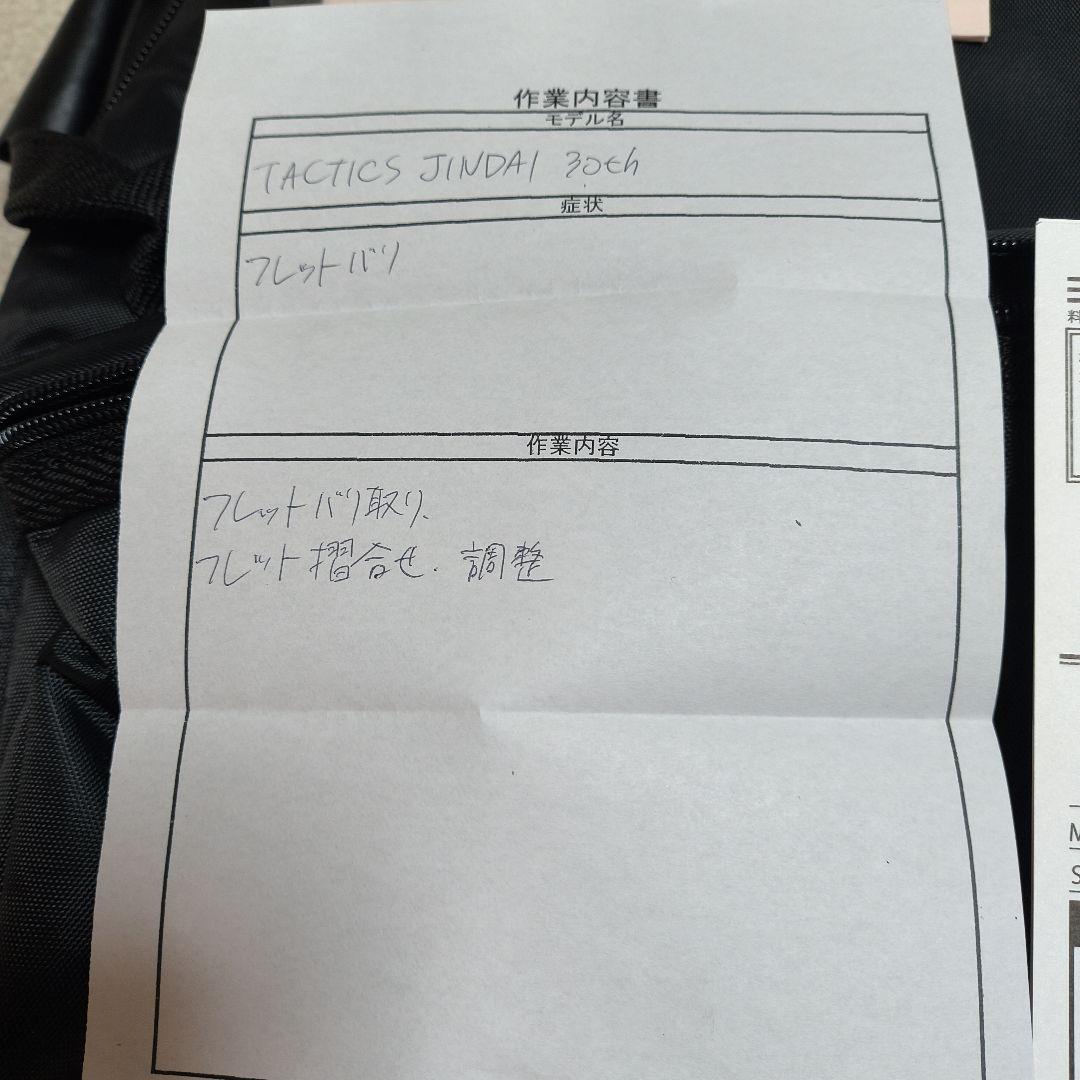 作業内容書
モデル名
TACTICS JINDAI 30th
症状
フレットバリ
作業内容
フレットバリ取り、
フレット摺合せ、調整
料
M
S